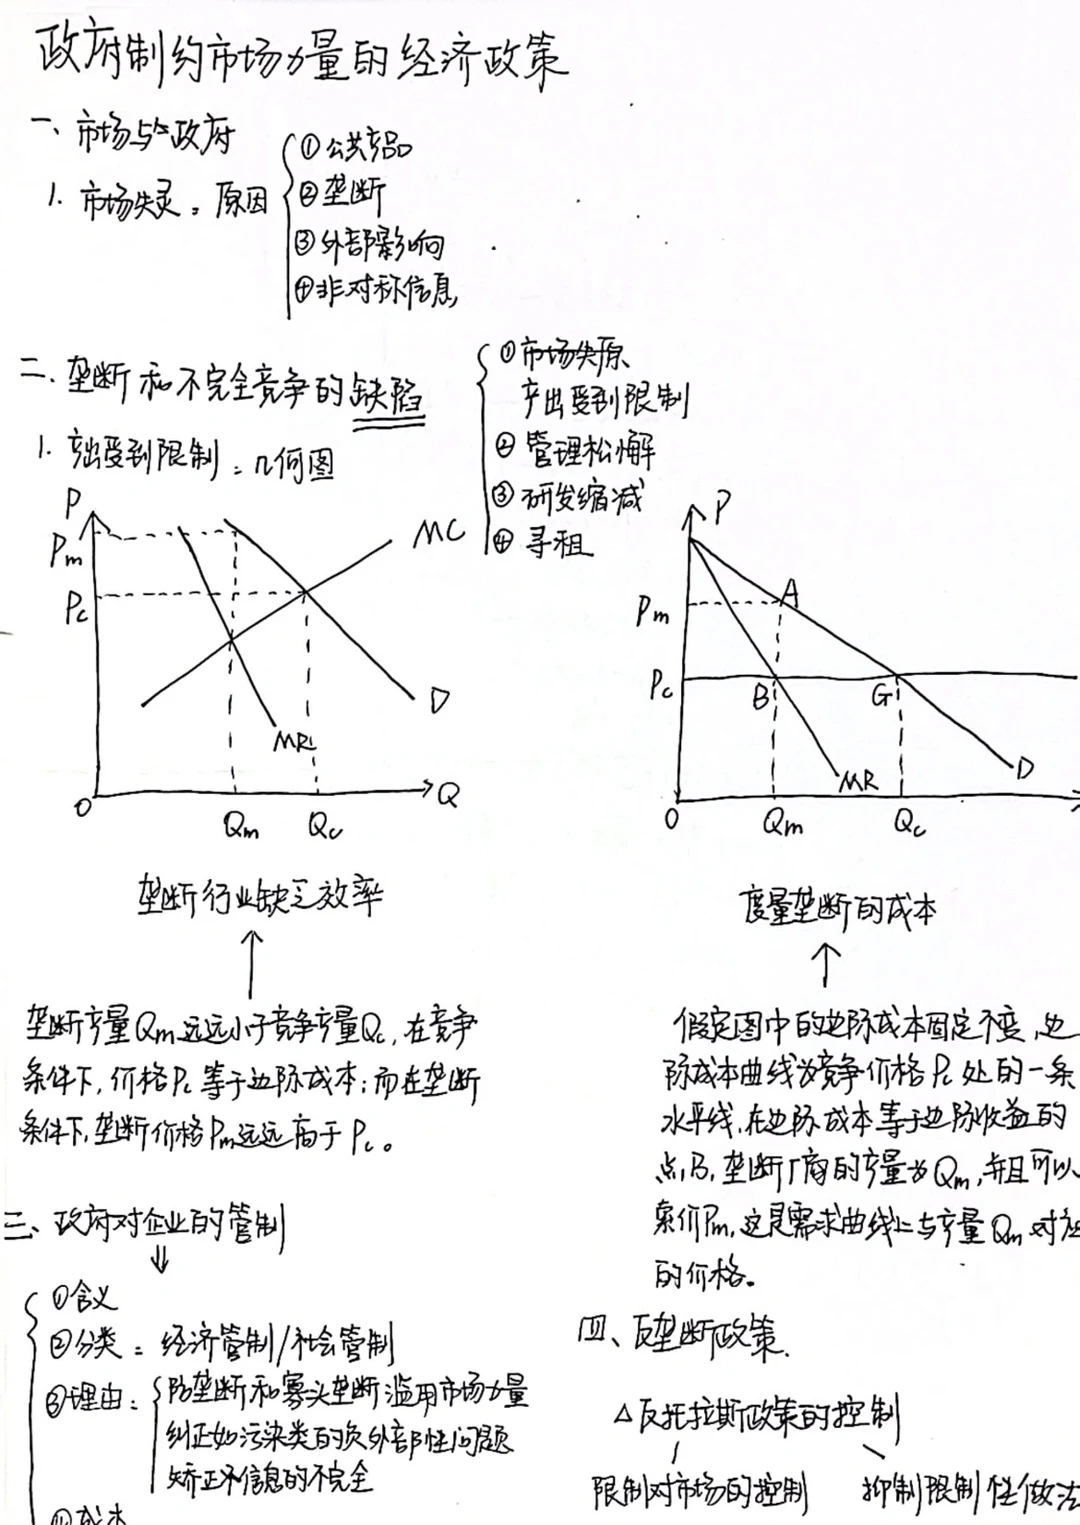 政府制约市场力量的经济政策
一、市场与政府
1. 市场失灵：原因
①公共产品
②垄断
③外部影响
④非对称信息
二、垄断和不完全竞争的缺陷
①市场失原
产出受到限制
②管理松懈
③研发缩减
④寻租
1. 产出受到限制：几何图
P
Pm
Pc
MC
D
MR
O
Qm
Qc
Q
P
Pm
Pc
A
B
G
D
MR
O
Qm
Qc
垄断行业缺乏效率
↑
垄断产量Qm远远小于竞争产量Qc，在竞争
条件下，价格Pc等于边际成本；而在垄断
条件下，垄断价格Pm远远高于Pc。
度量垄断的成本
↑
假定图中的边际成本固定不变，边
际成本曲线为竞争价格Pc处的一条
水平线，在边际成本等于边际收益的
点B，垄断厂商的产量为Qm，并且可以
索价Pm，这是需求曲线上与产量Qm对应
的价格。
三、政府对企业的管制
⇓
①含义
②分类：经济管制/社会管制
③理由：防垄断和寡头垄断滥用市场力量
纠正如污染类的负外部性问题
矫正不信息的不完全
④成本
四、反垄断政策
△反托拉斯政策的控制
限制对市场的控制
抑制限制性做法